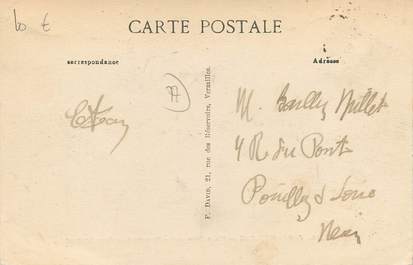 10 €
CARTE POSTALE
Correspondance
Adresse
77
F. DAVID, 21, rue des Réservoirs, Versailles.
M. Bailly Millet
4 R du Pont
Pouilly s Loire